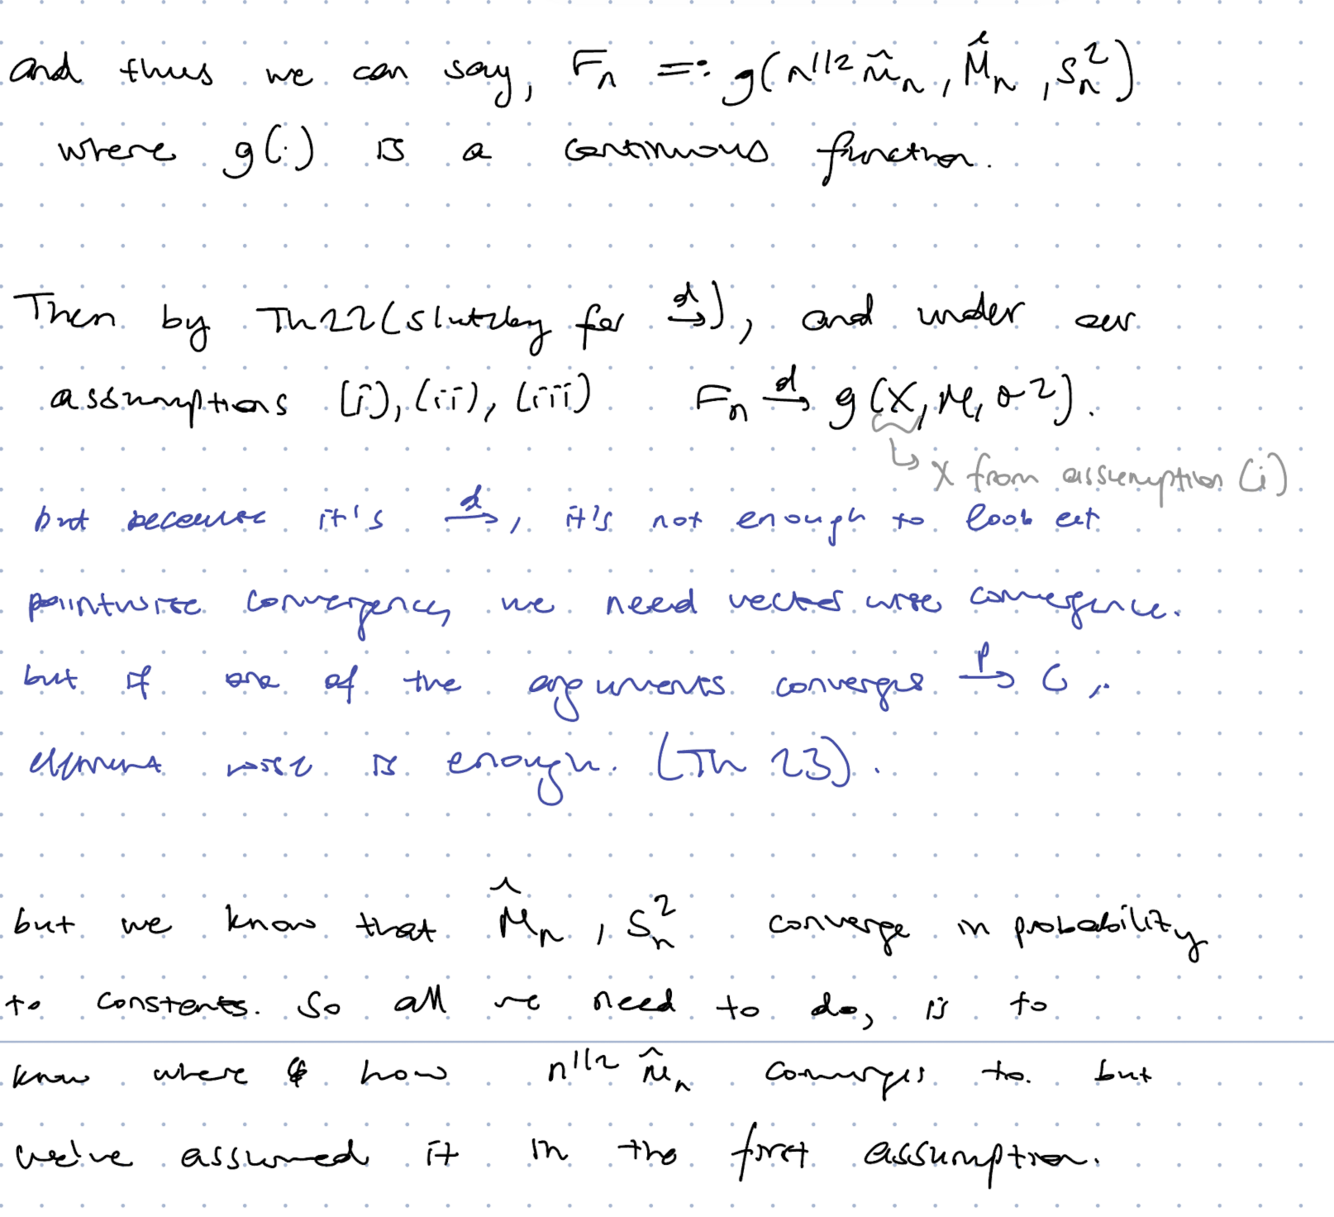 and thus we can say, Fₙ =: g(n^1/2 m̂ₙ, M̂ₙ, Sₙ²)
where g(.) is a continuous function.
Then by Th22 (slutzky for →d), and under our
assumptions (i), (ii), (iii) Fₙ →d g(X, M, σ²).
↳ X from assumption (i)
but because it's →d, it's not enough to look at
pointwise convergence, we need vector wise convergence.
but if one of the arguments converges →p C,
element wise is enough. (Th 23).
but we know that M̂ₙ, Sₙ² converge in probability
to constants. So all we need to do, is to
know where & how n^1/2 m̂ₙ converges to. but
we've assumed it in the first assumption.